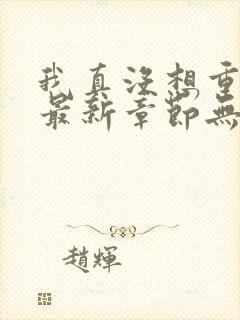 我真沒想重
最新章節無
趙輝